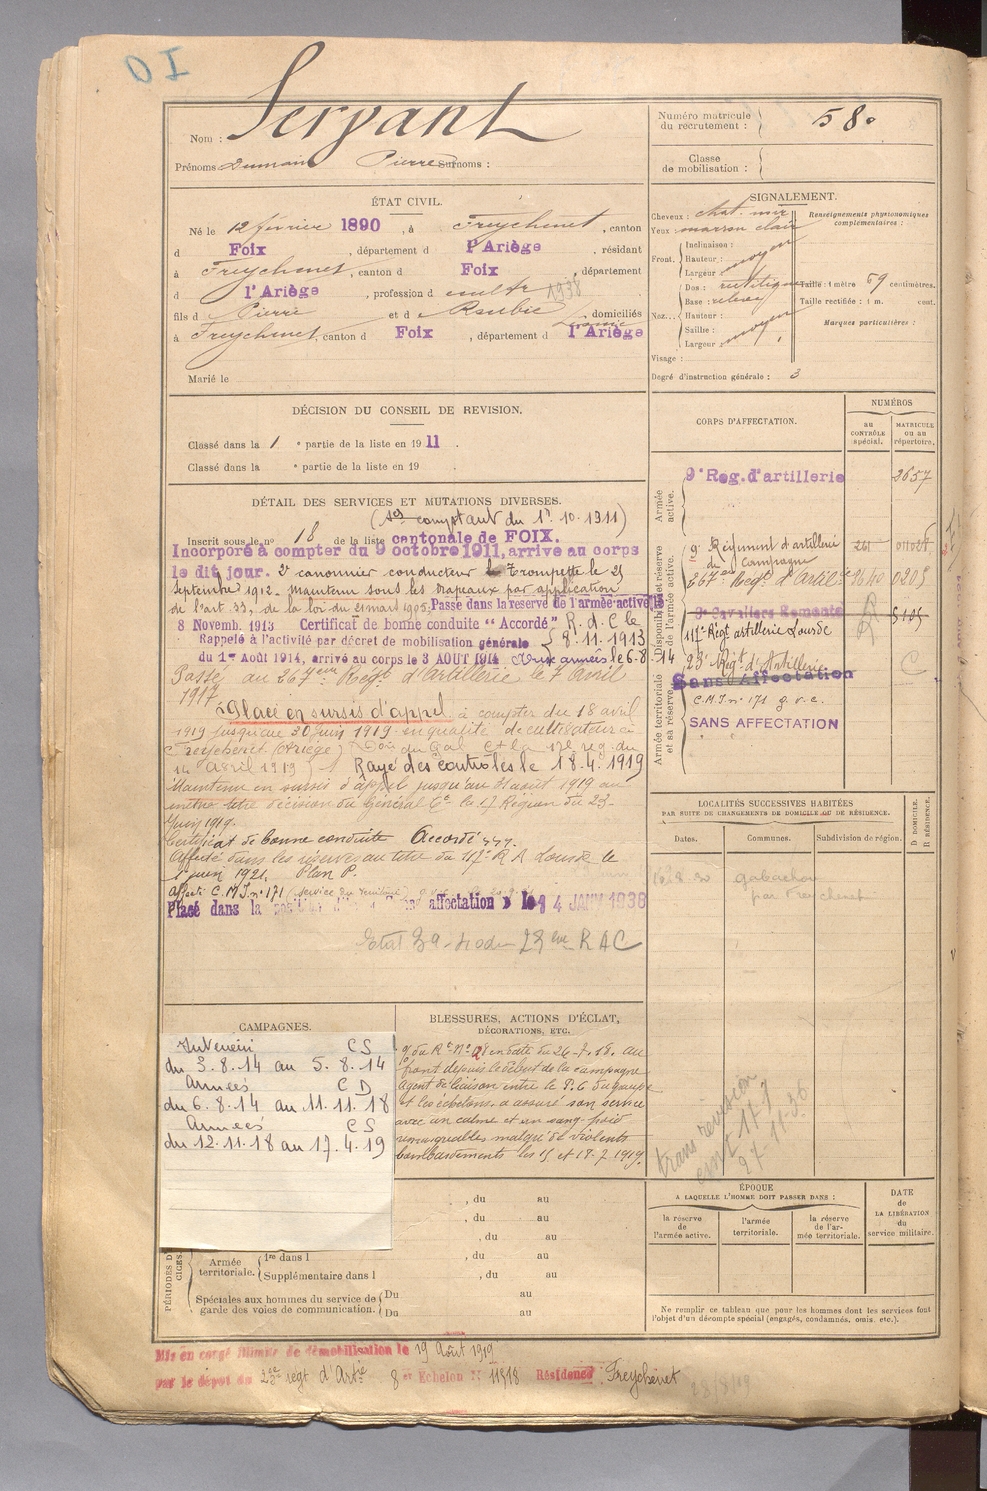 OI
Nom : Servant
Prénoms Dumain Pierre Surnoms :
Numéro matricule du recrutement : 580
Classe de mobilisation :
ÉTAT CIVIL.
Né le 12 février 1890, à Freychenet, canton
d Foix, département d l'Ariège, résidant
à Freychenet, canton d Foix, département
d l'Ariège, profession d cultr 1938
fils d Pierre et d Roubie, domiciliés
à Freychenet, canton d Foix, département d l'Ariège
Marié le
SIGNALEMENT.
Cheveux : chat. noir
Yeux : marron clair
Front. Inclinaison :
Hauteur : moyen
Largeur :
Nez... Dos : rectiligne
Base : relevée
Hauteur :
Saillie : moyen
Largeur :
Visage :
Degré d'instruction générale : 3
Renseignements physionomiques complémentaires :
Taille : 1 mètre 69 centimètres.
Taille rectifiée : 1 m. cent.
Marques particulières :
DÉCISION DU CONSEIL DE REVISION.
Classé dans la 1 e partie de la liste en 1911.
Classé dans la e partie de la liste en 19 .
DÉTAIL DES SERVICES ET MUTATIONS DIVERSES.
comptant du 1er.10.1911)
Inscrit sous le no 18 de la liste cantonale de FOIX.
Incorporé à compter du 9 octobre 1911, arrive au corps
le dit jour. 2e canonnier conducteur le Trompette le 25
Septembre 1912. Maintenu sous les drapeaux par application
de l'art 33, de la loi du 21 mars 1905. Passé dans la réserve de l'armée active le
8 Novemb. 1913 Certificat de bonne conduite "Accordé" R. d. C le 8.11.1913
Rappelé à l'activité par décret de mobilisation générale
du 1er Août 1914, arrivé au corps le 3 AOUT 1914 Aux armées le 6-8-14
Passé au 267eme Régt d'artillerie le 7 avril
1917
Placé en sursis d'appel à compter du 18 avril
1919 jusqu'au 30 juin 1919 en qualité de cultivateur à
Freychenet (Ariège) Don du Gal Ct la 17e rég. du
14 avril 1919 Rayé des contrôles le 18.4.1919
Maintenu en sursis d'appel jusqu'au 31 août 1919 au
même titre décision du Général Ct la 17 Région du 23-
Juin 1919.
Certificat de bonne conduite Accordé
Affecté dans les réserves au titre du 117e R A Lourde le
1er juin 1921. Plan P.
Affecté C.M.I. no 171 (Service du Territoire) g.v.c.
Placé dans la position dite sans affectation le 14 JANV 1938
Etat 39-40 du 23eme RAC
CORPS D'AFFECTATION.
NUMÉROS
au CONTRÔLE spécial.
MATRICULE ou au répertoire.
Armée active.
9e Reg. d'artillerie 3657
Disponibilité et réserve de l'armée active.
9e Régiment d'artillerie de Campagne 261
267eme Regt d'Artillie 0205
9e Cavaliers Remonte 5105
117e Régt artillerie Lourde
Armée territoriale et sa réserve.
23e Régt d'Artillerie C
Sans Affectation
C.M.I. no 171 g.v.c.
SANS AFFECTATION
LOCALITÉS SUCCESSIVES HABITÉES
PAR SUITE DE CHANGEMENTS DE DOMICILE OU DE RÉSIDENCE.
Dates. Communes. Subdivision de région. D. DOMICILE. R. RÉSIDENCE.
gabachou
par Freychenet
trans revision
emt 171
27 11.36
CAMPAGNES.
Intérieur CS
du 3.8.14 au 5.8.14
Armées CD
du 6.8.14 au 11.11.18
Armées CS
du 12.11.18 au 17.4.19
BLESSURES, ACTIONS D'ÉCLAT,
DÉCORATIONS, ETC.
O/ du Rt No 21 en date du 26-7-18. au
front depuis le début de la campagne
agent de liaison entre le P.C du groupe
et les échelons, a assuré son service
avec un calme et un sang-froid
remarquables malgré de violents
bombardements les 15 et 18-7-1919.
, du au
, du au
, du au
PÉRIODES D
CICES.
Armée territoriale. 1re dans l , du au
Supplémentaire dans l , du au
Spéciales aux hommes du service de garde des voies de communication. Du au
Du au
ÉPOQUE
A LAQUELLE L'HOMME DOIT PASSER DANS :
la réserve de l'armée active.
l'armée territoriale.
la réserve de l'armée territoriale.
DATE de LA LIBÉRATION du service militaire.
Ne remplir ce tableau que pour les hommes dont les services font
l'objet d'un décompte spécial (engagés, condamnés, omis, etc.).
Mis en congé illimité de démobilisation le 19 Août 1919
par le dépot du 23e régt d'Artie 8e Echelon No 11518 Résidence Freychenet
28/8/19